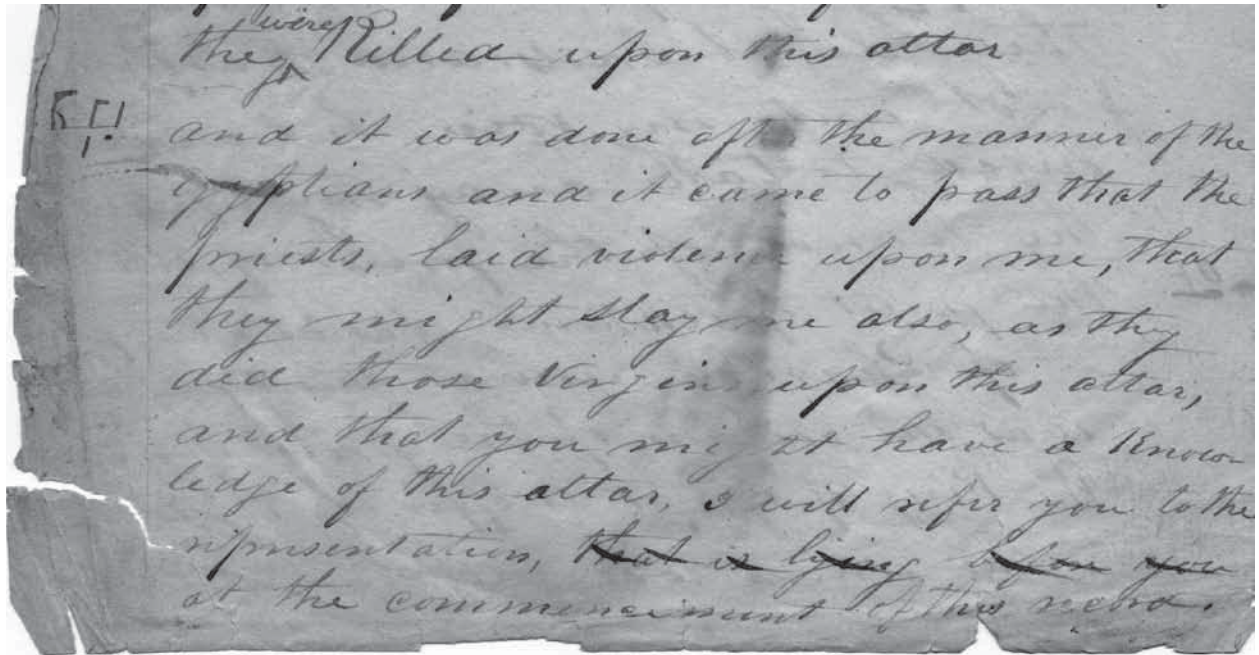 they were Killed upon this altar
and it was done after the manner of the
egyptians and it came to pass that the
priests, laid violence upon me, that
they might slay me also, as they
did those Virgins upon this altar,
and that you might have a Know-
ledge of this altar, I will refer you to the
representation, that is lying before you
at the commencement of this record.